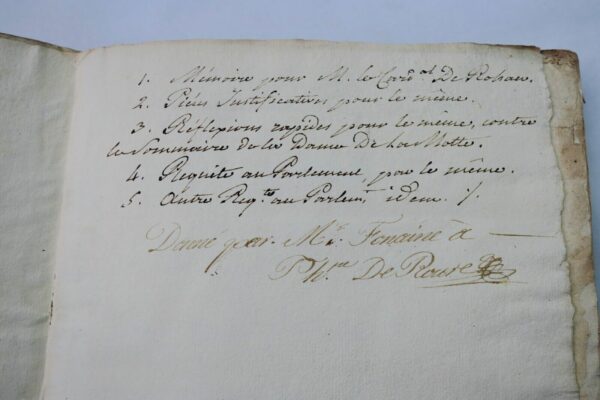 1. Mémoire pour M. le Card.al De Rohan.
2. Pièces Justificatives pour le même.
3. Réflexions rapides pour le même, contre
le Sommaire de la Dame De La Motte.
4. Requête au Parlement, pour le même.
5. Autre Reqte au Parlemt idem ./.
Donné par Mr. Fonaine à
De Roure